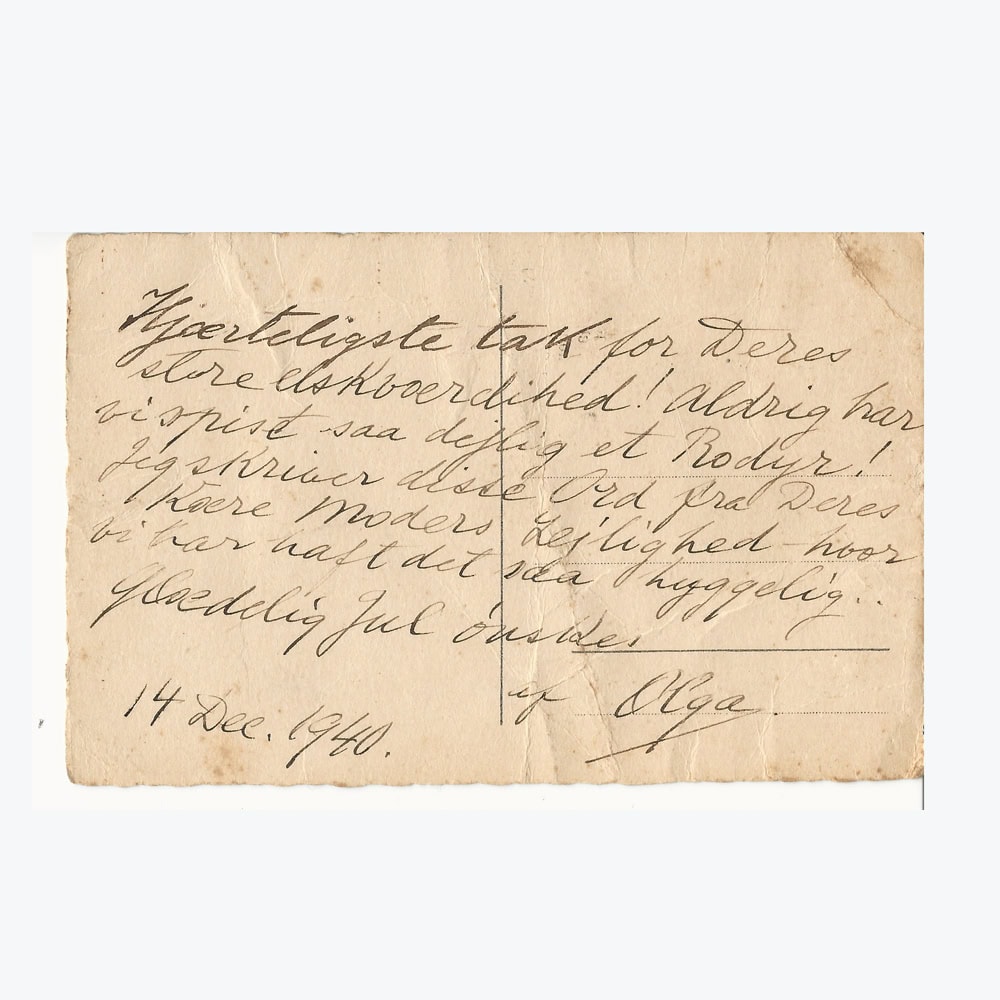 Hjærteligste tak for Deres
store elskværdihed! Aldrig har
vi spist saa dejlig et Rodyr!
Jeg skriver disse Ord fra Deres
Kære Moders Lejlighed - hvor
vi har haft det saa hyggelig..
Glædelig Jul ønskes
af Olga.
14 Dec. 1940.